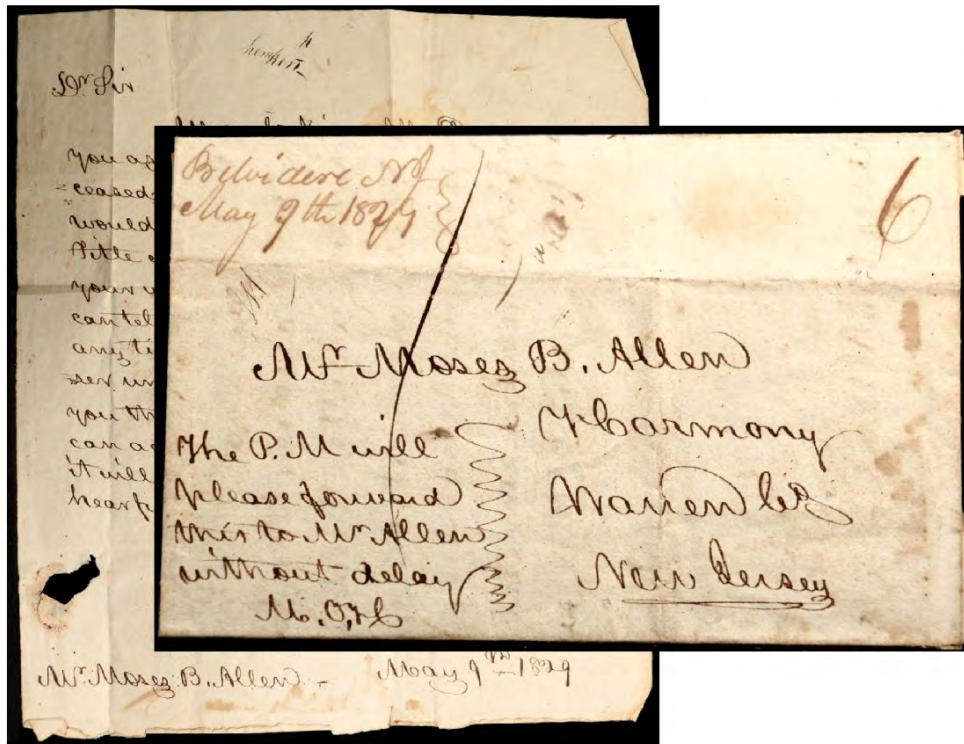 Dr. Sir
you
ceased
would
Title
your
can tel
any ti
ser un
you th
can a
it will
hear f
Mr. Moses B. Allen - May 9th 1829
Belvidere NJ
May 9th 1829
6
Mr. Moses B. Allen
Harmony
Warren Co
New Jersey
The P. M will
please forward
this to Mr Allen
without delay